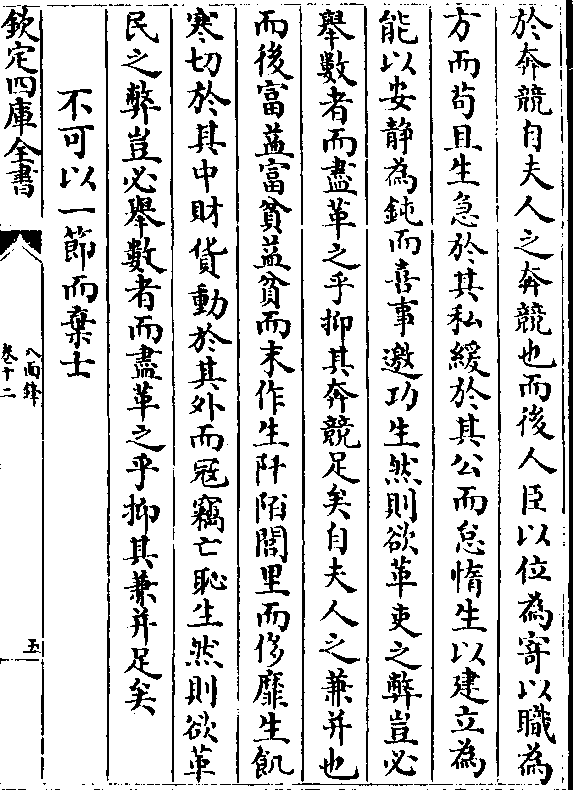 於奔競自夫人之奔競也而後人臣以位為寄以職為
方而苟且生急於其私緩於其公而怠惰生以建立為
能以安静為鈍而喜事邀功生然則欲革吏之弊豈必
舉數者而盡革之乎抑其奔競足矣自夫人之兼并也
而後富益富貧益貧而末作生阡陌閭里而侈靡生飢
寒切於其中財貨動於其外而冦竊亡恥生然則欲革
民之弊豈必舉數者而盡革之乎抑其兼并足矣
不可以一節而棄士
欽定四庫全書
八面鋒
卷十二
五